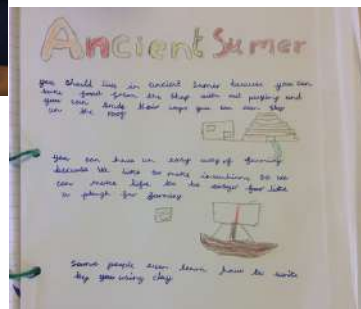 Ancient Sumer
you should live in ancient Sumer because you can
take food from the shop with out paying and
you can that you can
on the roof
you can have an easy way of farming
because we like to make inventions so we
can make life to be easyer for like
a plough for farming
Some people even learn how to write
by you using clay